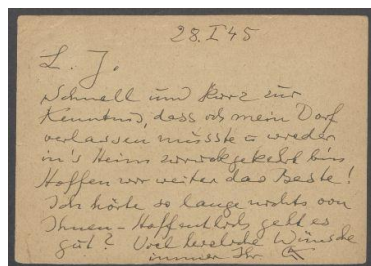 28.I 45
L. J.
Schnell und kurz zur
Kenntnis, dass ich mein Dorf
verlassen müsste u wieder
in's Heim zurückgekehrt bin
Hoffen wir weiter das Beste!
Ich hörte so lange nichts von
Ihnen - Hoffentlich geht es
gut? Viel herzliche Wünsche
immer Ihr